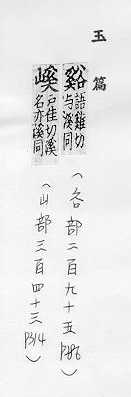 玉篇
谿 語雞切
与溪同
(谷部二百九十五 P486)
嵠 戸佳切溪
名亦溪同
(山部三百四十三 P314)